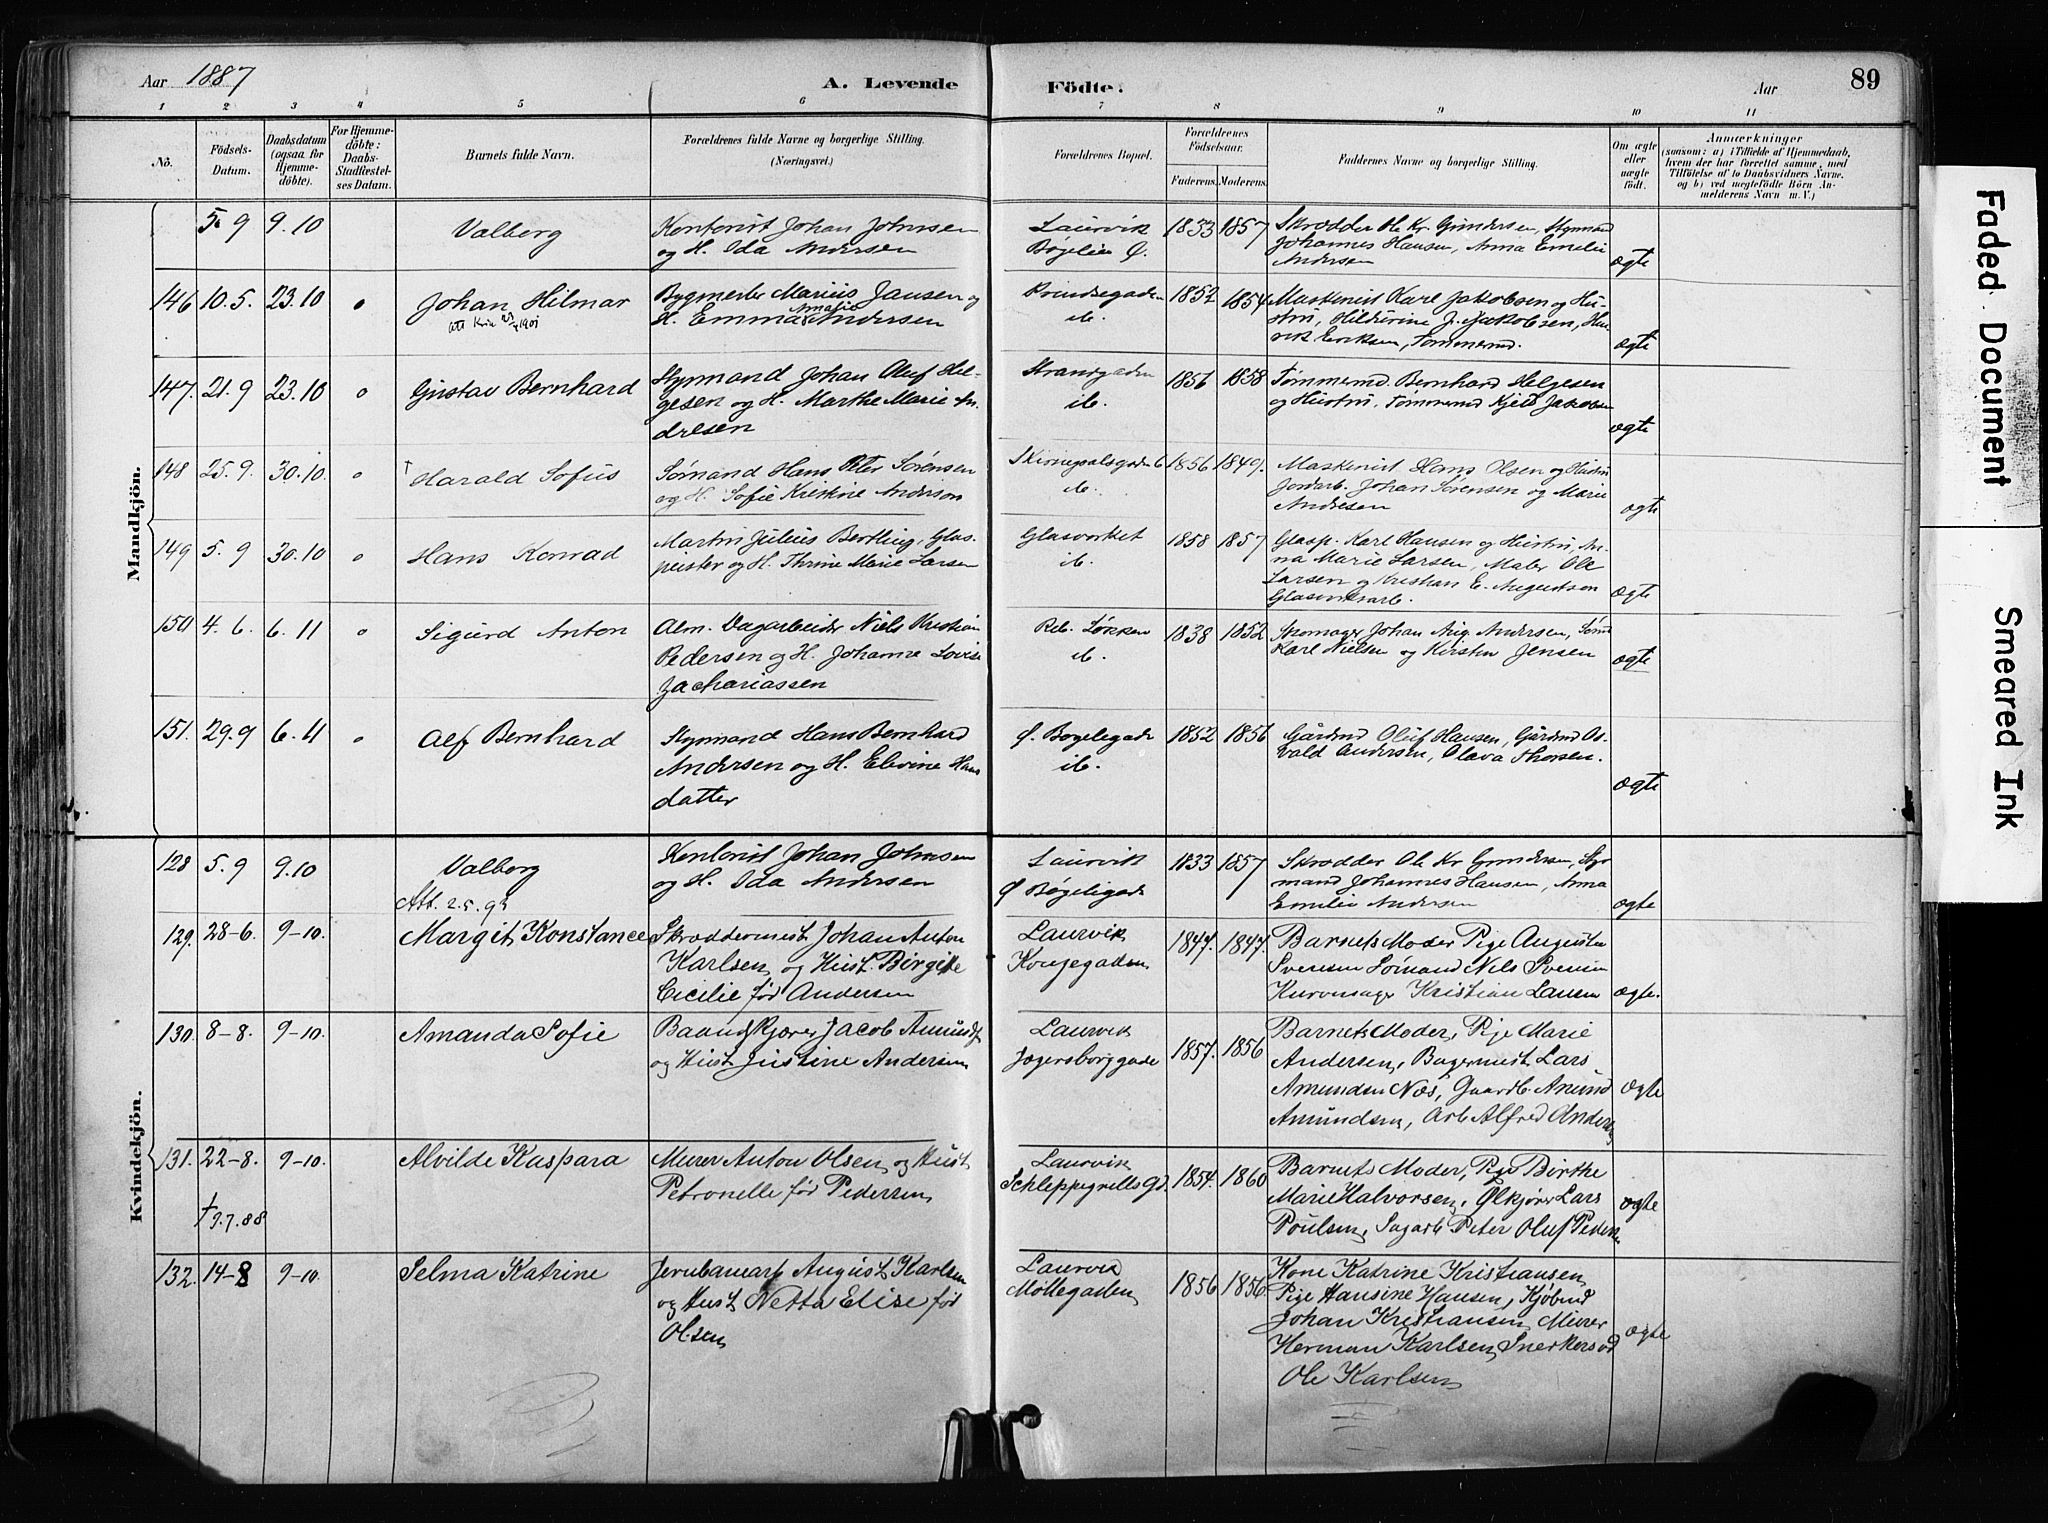 Aar 1887
A. Levende
Födte.
Aar
89
1 2 3 4 5 6 7 8 9 10 11
No.
Födsels-
Datum.
Daabsdatum
(ogsaa for
Hjemme-
döbte).
For Hjemme-
döbte:
Daabs-
Stadfæstel-
ses Datum.
Barnets fulde Navn.
Forældrenes fulde Navne og borgerlige Stilling.
(Næringsvei.)
Forældrenes Bopæl.
Forældrenes
Födselsaar.
Faderens. Moderens.
Faddernes Navne og borgerlige Stilling.
Om ægte
eller
uægte
födt.
Anmærkninger
(saasom: a) i Tilfælde af Hjemmedaab,
hvem der har forrettet samme, med
Tilföielse af to Daabsvidners Navne.
og b) ved uægtefödte Börn An-
melderens Navn m. V.)
Mandkjön.
5. 9 9. 10 Valborg
Kontorist Johan Johnsen
og H. Ida Andersen
Laurvik
Bøgelien Ø.
1833 1857
Skrædder Ole Kr. Gundersen, Styrmand
Johannes Hansen, Anna Emilie
Andersen
ægte
146 10.5. 23.10 o Johan Hilmar
Bygmester Marius Jansen og
H. Emma Amalie Andersen
Prindsegaden
ib.
1852 1854
Maskinist Karl Jakobsen og Hu-
stru, Hildurine J. Jakobsen, Hen-
rik Eriksen, Tømmermd.
ægte
147. 21.9 23.10 o Gustav Bernhard
Styrmand Johan Oluf Hel-
gesen og H. Marthe Marie An-
dresen
Strandgaden
ib.
1856 1858
Tømmermd. Bernhard Helgesen
og Hustru, Tømmermd Kjell Jakobsen
ægte
148 25.9. 30.10. o † Harald Sofus
Sømand Hans Peter Sørensen
og H. Sofie Kristine Anderson
ib.
1856 1849.
Maskinist Hans Olsen og Hustru
Jordarb. Johan Sørensen og Marie
Andresen
ægte
149 5. 9 30.10 o Hans Konrad
Martin Julius Bertling, Glas-
puster og H. Thrine Marie Larsen
Glasverket
ib.
1858 1857
Glasp. Karl Hansen og Hustru, An-
na Marie Larsen, Maler Ole
Larsen og Kristian E. Augustson
Glasverksarb.
ægte
150 4. 6. 6. 11 o Sigurd Anton
Alm. Dagarbeider Niels Kristian
Pedersen og H. Johanne Lovise
Zachariassen
Reb. Løkken
ib.
1838 1852
Skomager Johan Aug. Andersen, Sømd
Karl Nielsen og Kirstin Jensen
ægte
151. 29.9 6. 11 o Alf Bernhard
Styrmand Hans Bernhard
Andersen og H. Elevine Hans
datter
Ø. Bøgelegade
ib.
1852 1856
Gårdmd Oluf Hansen, Gårdmd Os-
vald Andersen, Olava Thorsen.
ægte
Kvindekjön.
128 5.9 9.10 Valborg
Att. 2.5.92
Kontorist Johan Johnsen
og H. Ida Andersen
Laurvik
Ø Bøgeligade
1833 1857
Skrædder Ole Kr Gundersen, Styr
mand Johannes Hansen, Anna
Emilie Andersen
ægte
129. 28-6. 9-10. Margit Konstance
Skræddermest Johan Anton
Karlsen og Hust. Birgitte
Cicilie fød Andersen
Laurvik
Kongegaden
1847. 1847.
Barnets Moder Pige Augusta
Svensen Sømand Nils Svensen
Kurvmager Kristian Larsen
ægte.
130. 8-8. 9-10. Amanda Sofie
Baandskjærer Jacob Amunds
og Hust Justine Andersen
Laurvik
Jægersborggade
1857. 1856
Barnets Moder, Pige Marie
Andersen, Bagermest Lars
Amundsen Næs, Gaardb Amund
Amundsen, Arb Alfred Anders
ægte
131. 22-8. 9-10. Alvilde Kaspara
† 9.7.88
Murer Anton Olsen og Hust
Petronelle fød Pedersen
Laurvik
Schleppegrells Gd.
1854. 1860
Barnets Moder, Pige Birthe
Marie Halvorsen, Ølkjører Lars
Poulsen, Sagarb Peter Oluf Peders
ægte
132. 14-8 9-10. Selma Katrine
Jernbanearb August Karlsen
og Hust Netta Elise fød
Olsen
Laurvik
Møllegaden
1856 1856.
Kone Katrine Kristiansen
Pige Hansine Hansen, Kjøbmd
Johan Kristiansen Murer
Herman Karlsen, Snerkersvd
Ole Karlsen
ægte
Faded Document
Smeared Ink